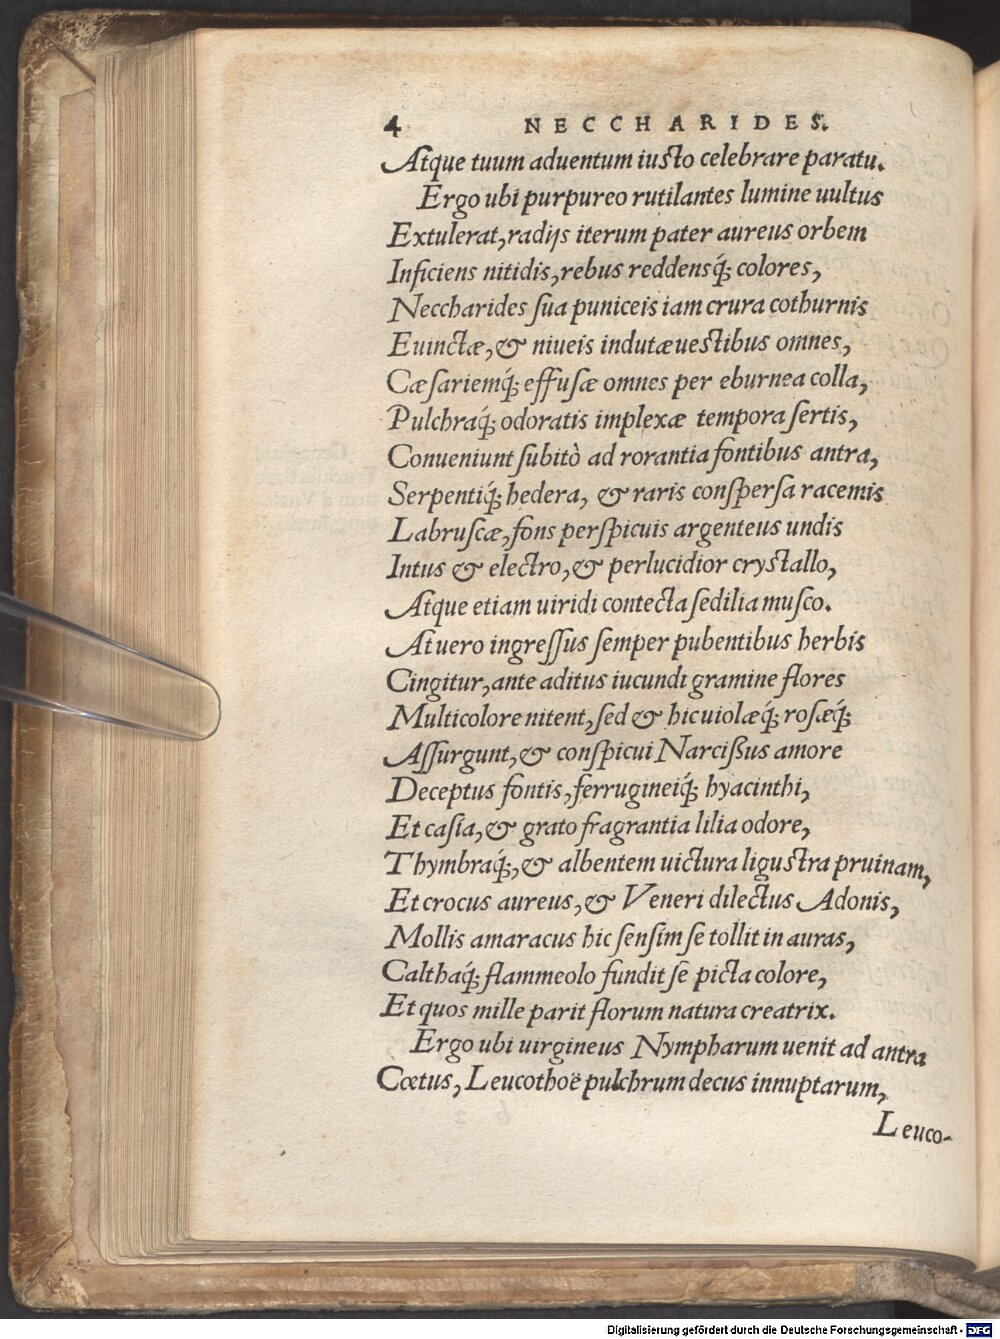 4 NECCHARIDES.
Atque tuum aduentum iusto celebrare paratu.
Ergo ubi purpureo rutilantes lumine uultus
Extulerat, radijs iterum pater aureus orbem
Inficiens nitidis, rebus reddensq́; colores,
Neccharides ſua puniceis iam crura cothurnis
Euinctæ, & niueis indutæ uestibus omnes,
Cæſariemq́; effuſæ omnes per eburnea colla,
Pulchraq́; odoratis implexæ tempora ſertis,
Conueniunt ſubitò ad rorantia fontibus antra,
Serpentiq́; hedera, & raris conſperſa racemis
Labruſcæ, fons perſpicuis argenteus undis
Intus & electro, & perlucidior crystallo,
Atque etiam uiridi contecta ſedilia muſco.
At uero ingreſſus ſemper pubentibus herbis
Cingitur, ante aditus iucundi gramine flores
Multicolore nitent, ſed & hic uiolæq́; roſæq́;
Aſſurgunt, & conſpicui Narciſsus amore
Deceptus fontis, ferrugineiq́; hyacinthi,
Et caſia, & grato fragrantia lilia odore,
Thymbraq́;, & albentem uictura ligustra pruinam,
Et crocus aureus, & Veneri dilectus Adonis,
Mollis amaracus hic ſenſim ſe tollit in auras,
Calthaq́; flammeolo fundit ſe picta colore,
Et quos mille parit florum natura creatrix.
Ergo ubi uirgineus Nympharum uenit ad antra
Cœtus, Leucothoë pulchrum decus innuptarum,
Leuco-
Digitalisierung gefördert durch die Deutsche Forschungsgemeinschaft - DFG